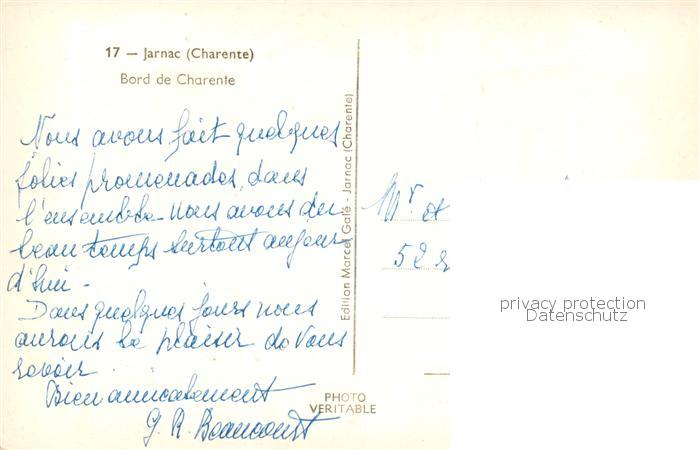 17 — Jarnac (Charente)
Bord de Charente
Nous avons fait quelques
jolies promenades, dans
l'ensemble nous avons du
beau temps surtout aujour
d'hui -
Dans quelques jours nous
aurons le plaisir de vous
revoir.
Bien amicalement
J. R.
Edition Marcel Gallé - Jarnac (Charente)
PHOTO
VERITABLE
Mr et
52
privacy protection
Datenschutz